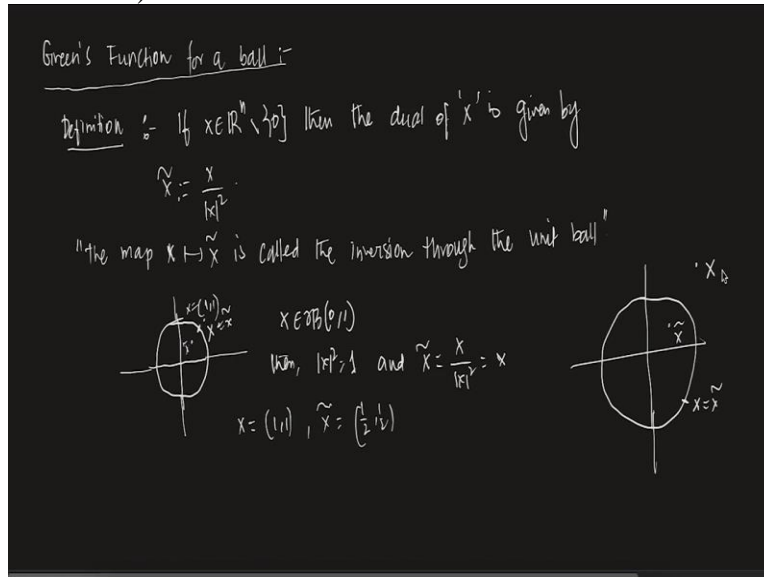 Green's Function for a ball :-
Definition :- If x∈ℝⁿ\{0} then the dual of 'x' is given by
x̃ := x/|x|².
"the map x ↦ x̃ is called the inversion through the unit ball"
x=(1,1)
x=x̃
x̃
x∈∂B(0,1)
then, |x|²=1 and x̃ = x/|x|² = x
x = (1,1) , x̃ = (1/2, 1/2)
x
x̃
x=x̃